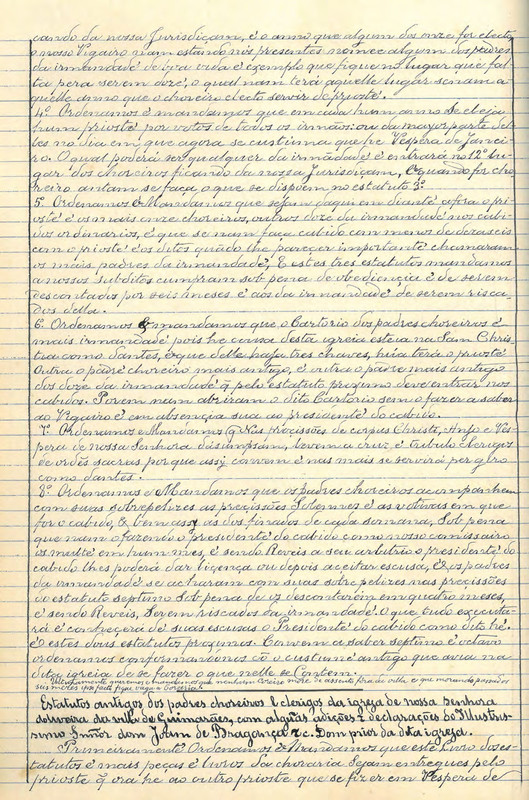 cando da nossa Jurisdiçam, é o anno que algum dos onze for electo
o nosso Vigairo nam estando nós presentes nomee algum dos padres
da irmandade de boa vida e exemplo que fique no lugar que fal-
ta pera serem doze, o qual nam terá aquelle lugar senam a-
quelle anno que o choreiro electo servir de priosté.
4º Ordenamos é mandamos que em cada hum anno se eleja
hum priosté por votos de todos os irmãos: ou da mayor parte del-
les no dia em que agora se custuma que he Vespera de Janei-
ro. O qual poderá ser qualquer da irmãdade é entrará no 12º lu-
gar dos choreiros ficando da nossa Jurisdiçam, E quando for cho-
reiro antam se faça, o que se dispoem no estatuto 3º
5º Ordenamos & Mandamos que sejam daqui em diante afora o pri-
osté é os mais onze choreiros, outros doze da irmandade nos cabi-
dos ordinarios, é que se nam faça cabido com menos de dezaseis
com o priosté é os ditos quãdo lhe parecer importante chamaram
os mais padres da irmandade, E estes tres estatutos mandamos
a nossos subditos cumpram sob pena de obediençia é de serem
descontados por seis meses é aos da irmandade de serem risca-
dos della.
6º Ordenamos & mandamos que o Cartorio dos padres choreiros é
mais irmandade pois he cousa desta igreia esteia na Sam Chris-
tia como dantes, & que delle haja tres chaves, hũa terá o priosté
Outra o padre choreiro mais antigo, é outra o padre mais antigo
dos doze da irmandade q̃ pelo estatuto proximo deve entrar nos
cabidos. Porem nam abriram o dito Cartorio sem o fazer a saber
ao Vigairo é em absençia sua ao presidente do cabido.
7º Ordenamos & Mandamos q̃ Nas proçissões de corpus Christi, Anjo e Ves-
pera de nossa Senhora dasumpsam, levem a cruz, é tribulo Clerigos
de ordẽs sacras porque assy convem é nas mais se servirá per giro
como dantes.
8º Ordenamos é Mandamos que os padres choreiros acompanhem
com suas sobrepelizes as proçissões Solemnes é as votivas em que
for o cabido, & bem assy as dos finados de cada semana, Sob pena
que nam o fazendo o presidente do cabido como nosso comissairo
os multe em hum mes, é sendo Reveis a seu arbitrio o presidente do
cabido lhes poderá dar liçença ou depois aceitar escusa, E os padres
da irmandade se acharam com suas sobrepelizes nas proçissões
do estatuto septimo Sob pena de os descontarem em quatro meses,
é sendo Reveis, Serem riscados da irmandade. O que tudo executa-
rá é conheçerá de suas escusas o Presidente do cabido como dito he.
é o estes dous estatutos proximos. Convem a saber septimo é octavo
ordenamos conformandonos cõ o custume antigo que avia na
dita igreia de se fazer o que nelle se Contem.
Estatutos antigos dos padres choreiros & clerigos da igreja de nossa Senhora
doliveira da villa de Guimarães, com algũas adições & declarações do Illustris-
simo Sñor dom Joam de Bragança &c. Dom prior da dita igreja.
Primeiramente Ordenamos & Mandamos que este Livro dos es-
tatutos é mais peças é livros da choraria Sejam entregues pelo
priosté q̃ ora he ao outro priosté que se fizer em Vespera de